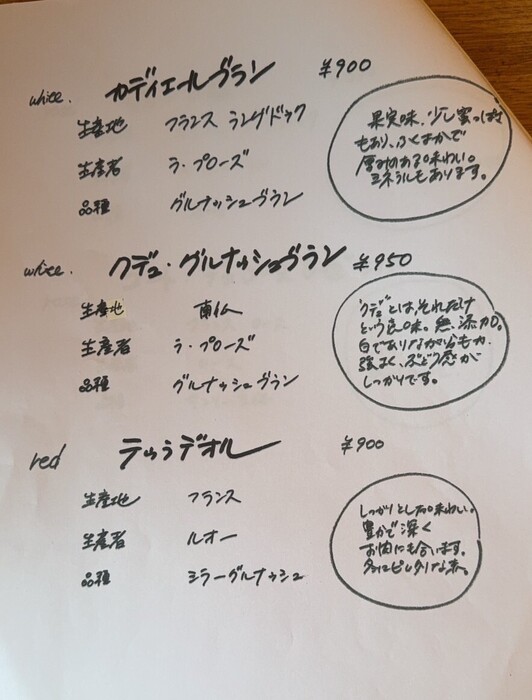 white. カディエールブラン ¥900
生産地 フランス ラングドック
生産者 ラ・プローズ
品種 グルナッシュブラン
果実味、少し蜜っぽさ
もあり、ふくよかで
厚みのある味わい。
ミネラルもあります。
white. クデュ・グルナッシュブラン ¥950
生産地 南仏
生産者 ラ・プローズ
品種 グルナッシュブラン
"クデュ"とは、それだけ
という意味。無添加。
白でありながら
強よく、ぶどう感が
しっかりです。
red テュラデオル ¥900
生産地 フランス
生産者 ルオー
品種 シラーグルナッシュ
しっかりとした味わい。
豊かで深く
お肉にも合います。
冬にピッタリな赤。